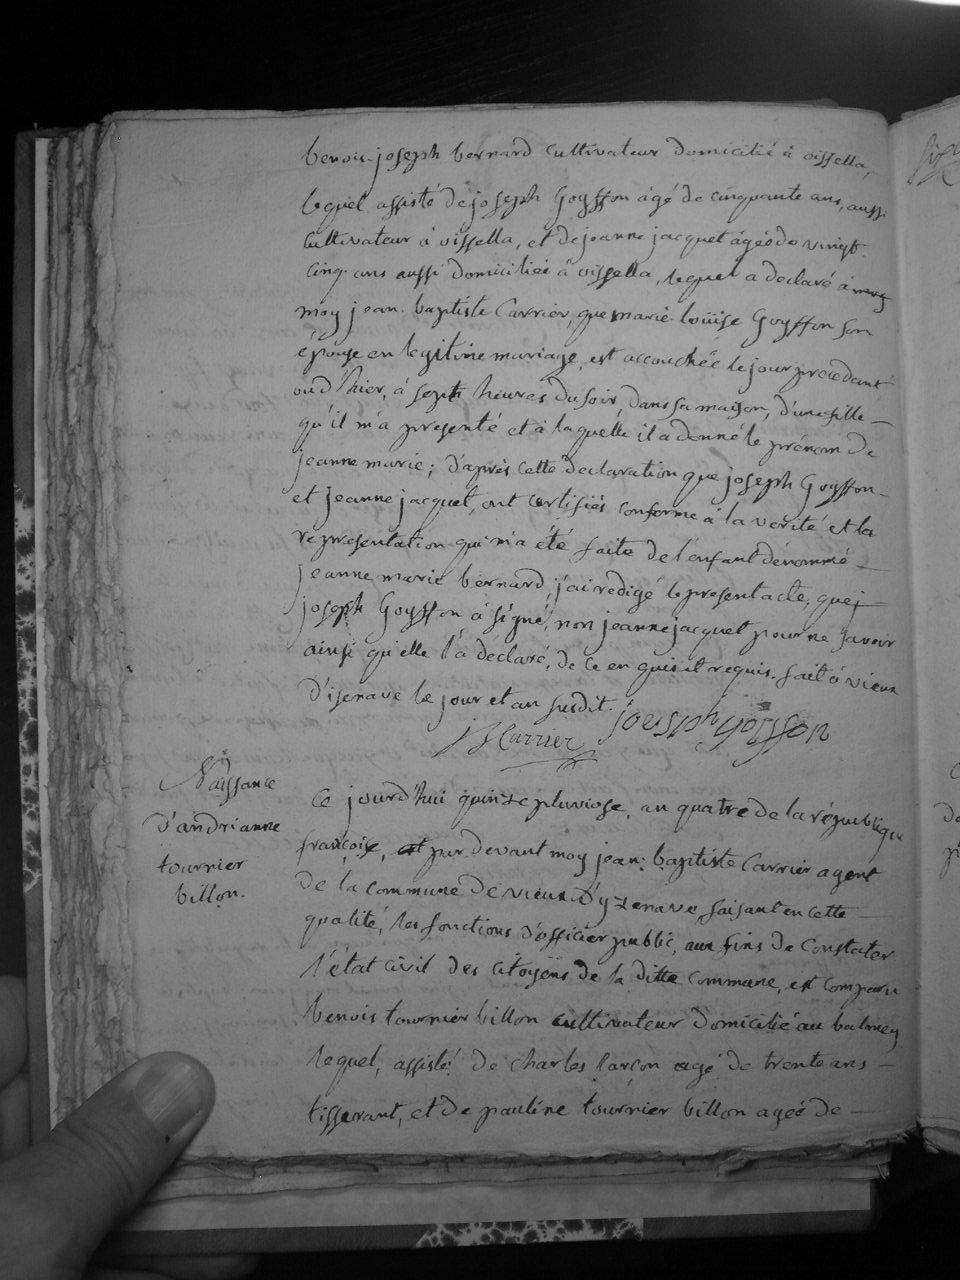 benois joseph bernard cultivateur domicilié à oissella,
lequel assisté de joseph Goyffon âgé de cinquante ans, aussi
cultivateur à oissella, et de jeanne jacquet âgéé de vingt
cinq ans aussi domiciliéé à oissella, lequel a déclaré à
moy jean baptiste Carrier, que marie loüise Goyffon son
épouse en legitime mariage, est accouchéé le jour précédant
ou d'hier, à sept heures du soir, dans sa maison, d'une fille
qu'il m'a presenté et à laquelle il a donné le prénom de
jeanne marie; d'après cette declaration que joseph Goyffon
et jeanne jacquet, ont certifiés conforme à la verité et la
representation qui m'a été faite de l'enfant dénommé
jeanne marie bernard, j'ai redigé le present acte, que
joseph Goyffon à signé, non jeanne jacquet pour ne savoir
ainsi qu'elle l'a déclaré, de ce enquis et requis. fait à vieux
D'isenave le jour et an susdit.
Carrier joesph goiffon
Naissance
d'andrianne
tournier
billon.
Ce jourd'huï quinze pluviose, an quatre de la république
françoise, est par devant moy jean baptiste Carrier agent
de la commune de vieux D'yzenave, faisant en cette
qualité, les fonctions d'officier public, aux fins de constater
l'état civil des citoyens de la ditte commune, est comparu
benois tournier billon cultivateur domicilié au balmey
lequel, assisté de charles larçon agé de trente ans
tisserant, et de pauline tournier billon ageé de